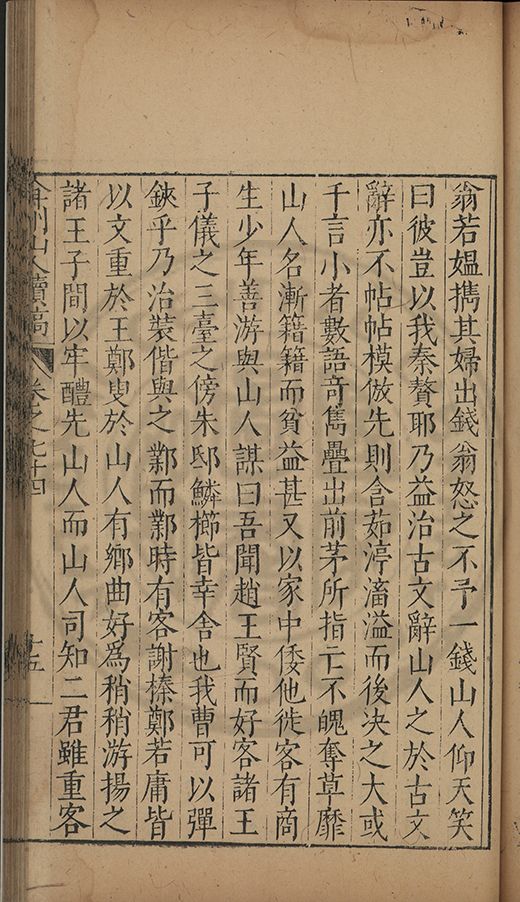 翁若媼攜其婦出錢翁怒之不予一錢山人仰天笑
曰彼豈以我秦贅耶乃益治古文辭山人之於古文
辭亦不帖帖模倣先則含茹渟滀溢而後決之大或
千言小者數語奇雋疊出前茅所指亡不魄奪草靡
山人名漸籍籍而貧益甚又以家中倭他徙客有商
生少年善游與山人謀曰吾聞趙王賢而好客諸王
子儀之三臺之傍朱邸鱗櫛皆幸舍也我曹可以彈
鋏乎乃治裝偕與之鄴而鄴時有客謝榛鄭若庸皆
以文重於王鄭叟於山人有鄉曲好為稍稍游揚之
諸王子間以牢醴先山人而山人司知二君雖重客
弇州山人續稿 卷之七十四 十五